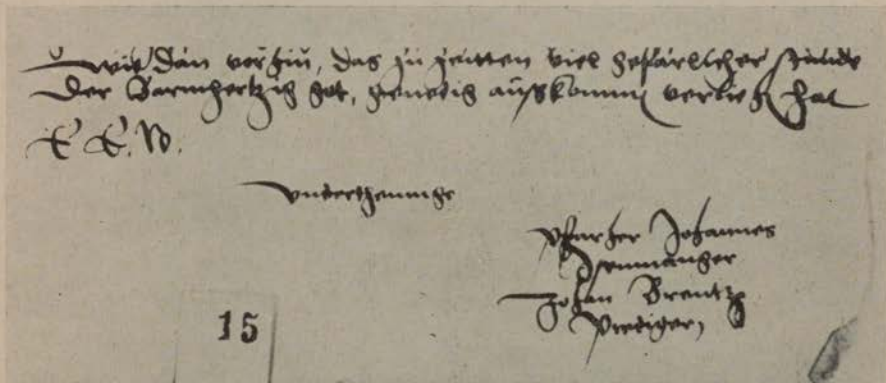 wie dan vorhin, das zu zeitten viel gefärlicher stände
der Barmhertzig got, genedig außkommen verlihen hat
E. E. W.
vnderthenige
Pfarher Johannes
Isenmanger
Johan Brentz
Prediger,
15